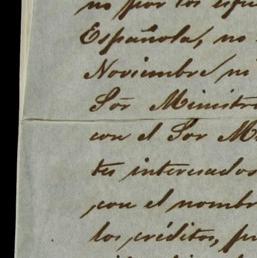 no por los
Española, no
Noviembre ni
Sor Ministro
con el Sor M
tes interesados
con el nombr
los créditos,